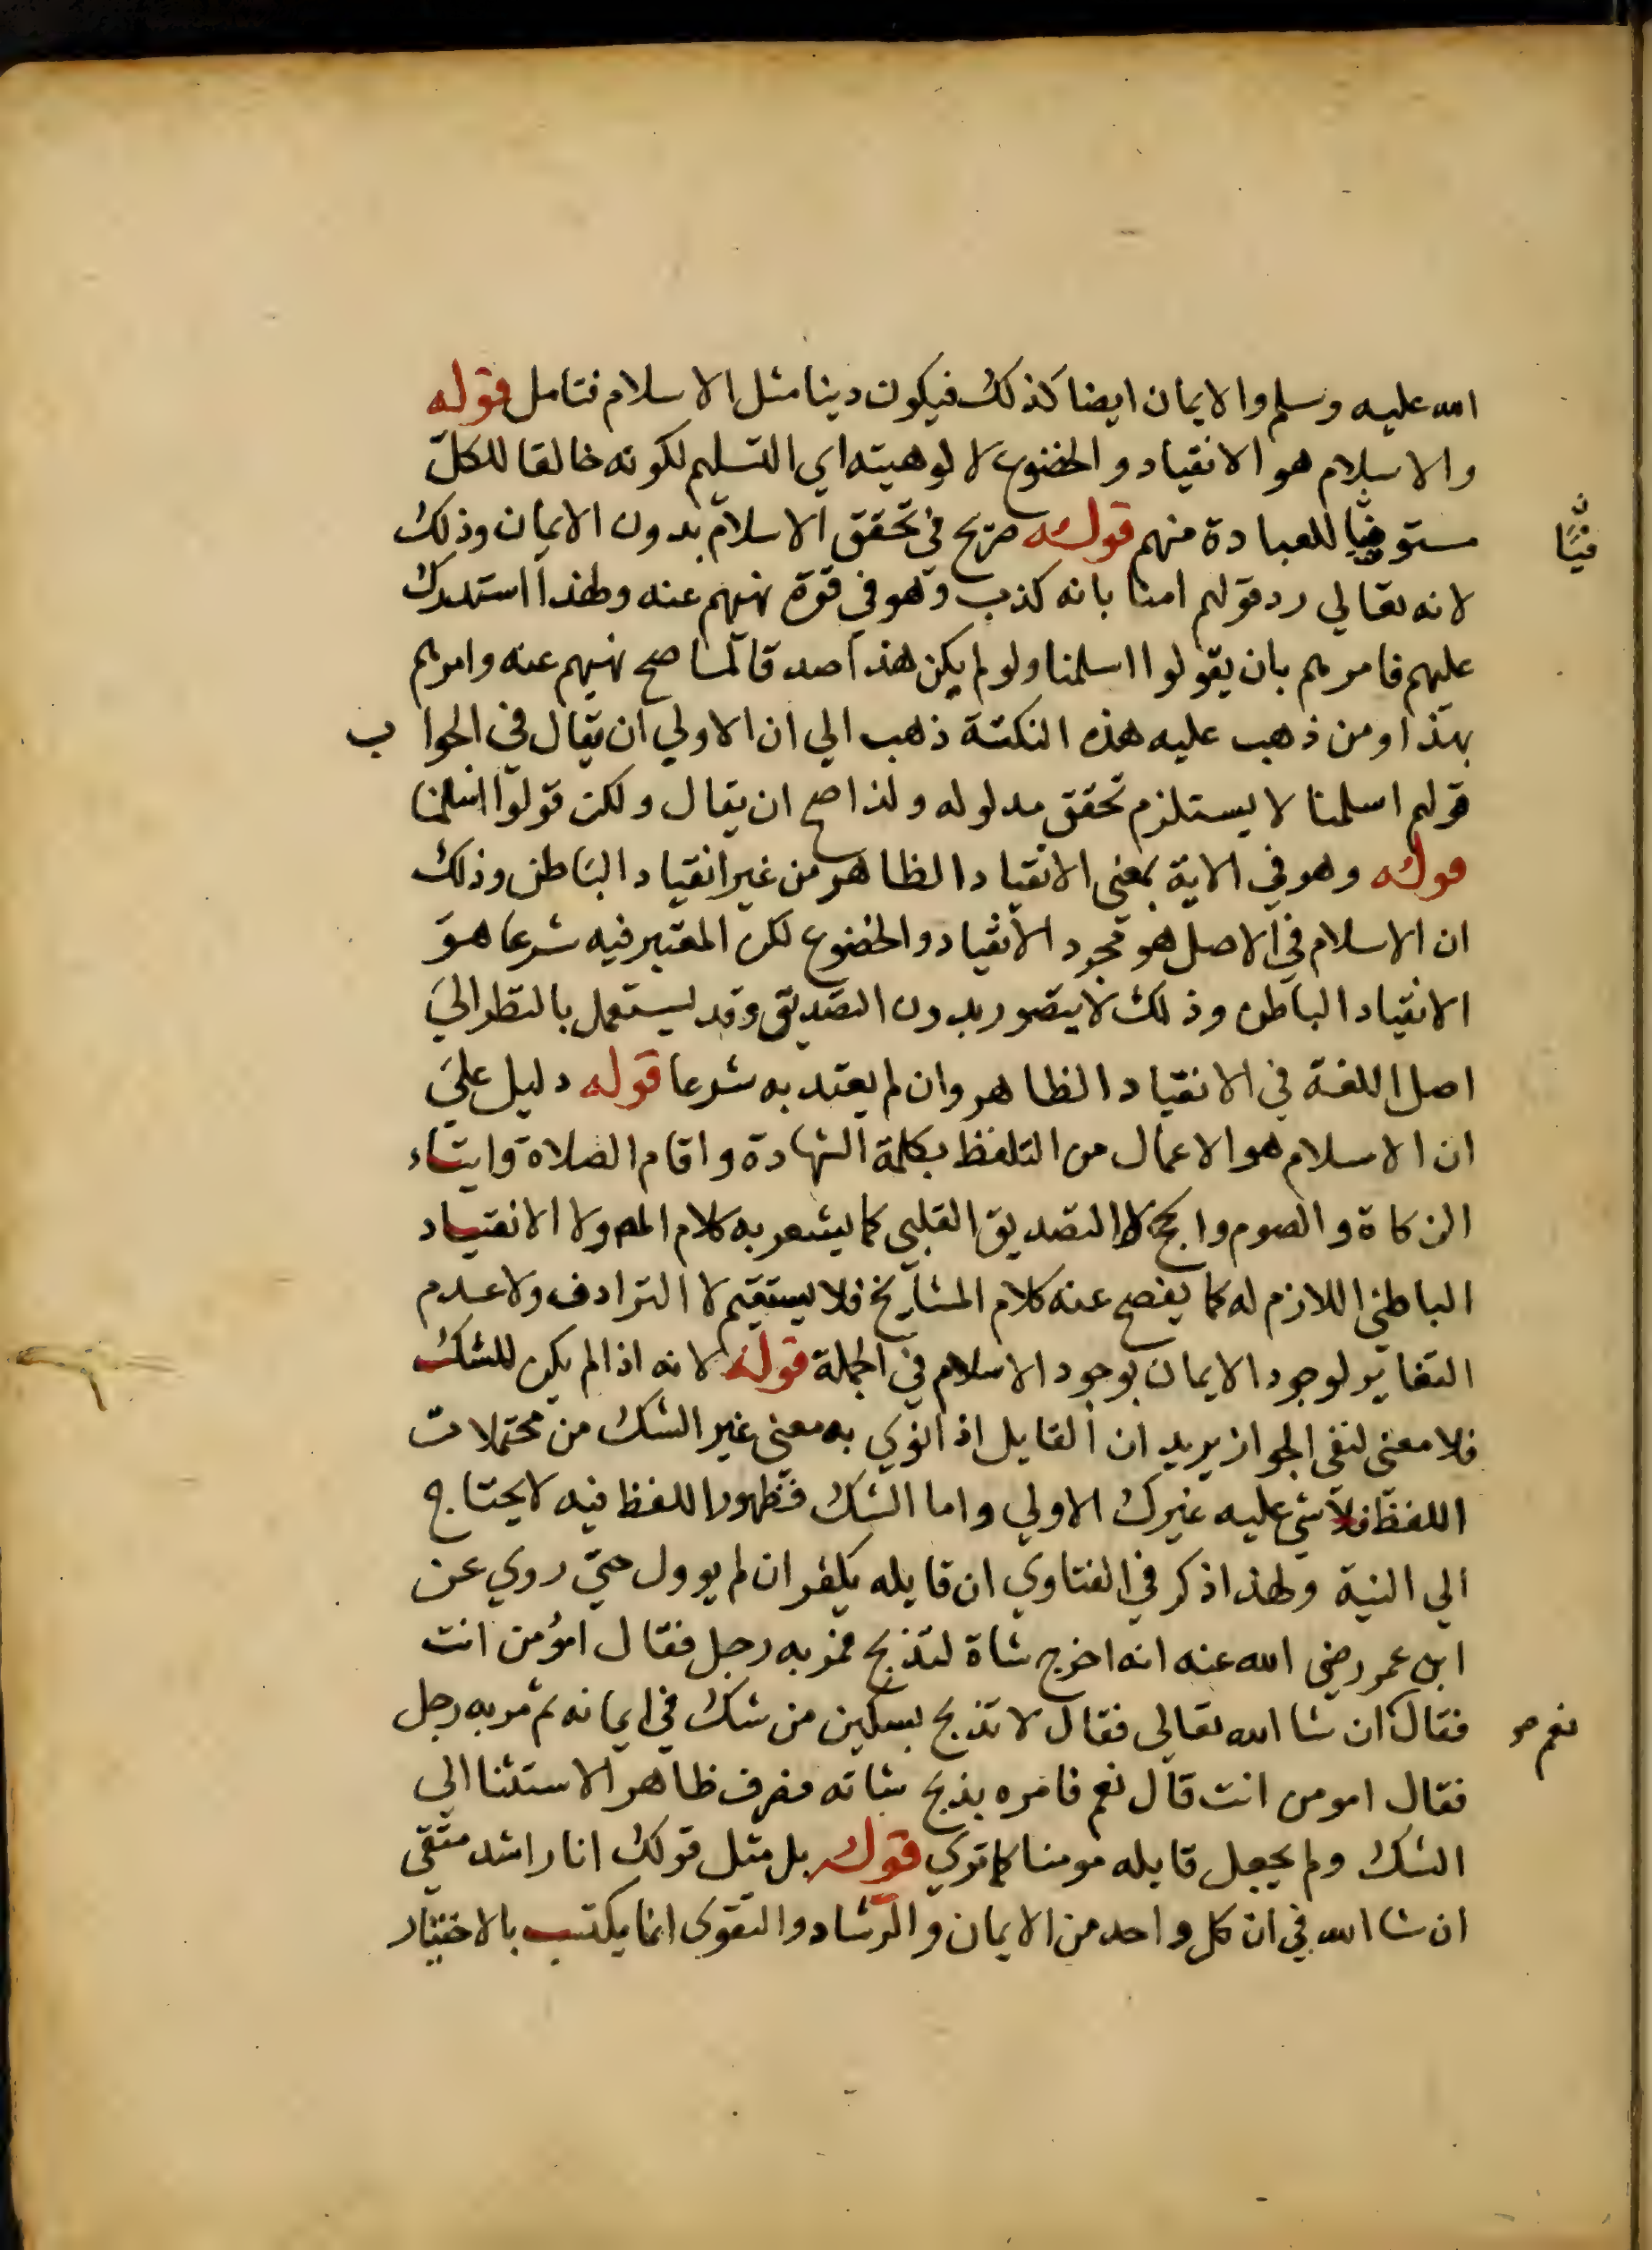 الله عليه وسلم والايمان ايضا كذلك فيكون دينا مثل الاسلام فتامل قوله
والاسلام هو الانقياد والخضوع لالوهيته اي التسليم لكونه خالقا للكل
للعبادة منهم قوله صريح في تحقق الاسلام بدون الايمان وذلك
لانه تعالي رد قولهم امنا بانه كذب وهو في قوة نهيهم عنه ولهذا استدرك
عليهم فامرهم بان يقولوا اسلمنا ولو لم يكن هذا صدقا لما صح نهيهم عنه وامرهم
بهذا ومن ذهب عليه هذه النكتة ذهب الي ان الاولي ان يقال في الجواب
قولهم اسلمنا لا يستلزم تحقق مدلوله ولذا صح ان يقال ولكن قولوا اسلمنا
قوله وهو في الاية بمعني الانقياد الظاهر من غير انقياد الباطن وذلك
ان الاسلام في الاصل هو مجرد الانقياد والخضوع لكن المعتبر فيه شرعا هو
الانقياد الباطن وذلك لا يتصور بدون التصديق وقد يستعمل بالنظر الي
اصل اللغة في الانقياد الظاهر وان لم يعتد به شرعا قوله دليل علي
ان الاسلام هو الاعمال من التلفظ بكلمة الشهادة واقام الصلاة وايتاء
الزكاة والصوم والحج لا التصديق القلبي كما يشعر به كلام المص ولا الانقياد
الباطني اللازم له كما يفصح عنه كلام المشايخ فلا يستقيم لا الترادف ولا عدم
التغاير لوجود الايمان بوجود الاسلام في الجملة قوله لانه اذا لم يكن للشك
فلا معني لنفي الجواز يريد ان القايل اذا نوي به معني غير الشك من محتملات
اللفظ فلا شي عليه غير ترك الاولي واما الشك فظهور اللفظ فيه لا يحتاج
الي النية ولهذا ذكر في الفتاوي ان قايله يكفر ان لم يوول حتي روي عن
ابن عمر رضي الله عنه انه اخرج شاة لتذبح فمر به رجل فقال امؤمن انت
فقال نعم ان شا الله تعالي فقال لا تذبح بسكين من شك في ايمانه ثم مر به رجل
فقال امومن انت قال نعم فامره بذبح شاته فصرف ظاهر الاستثنا الي
الشك ولم يجعل قايله مومنا كما تري قوله بل مثل قولك انا راشد متقي
ان شا الله في ان كل واحد من الايمان والرشاد والتقوي انما يكتسب بالاختيار